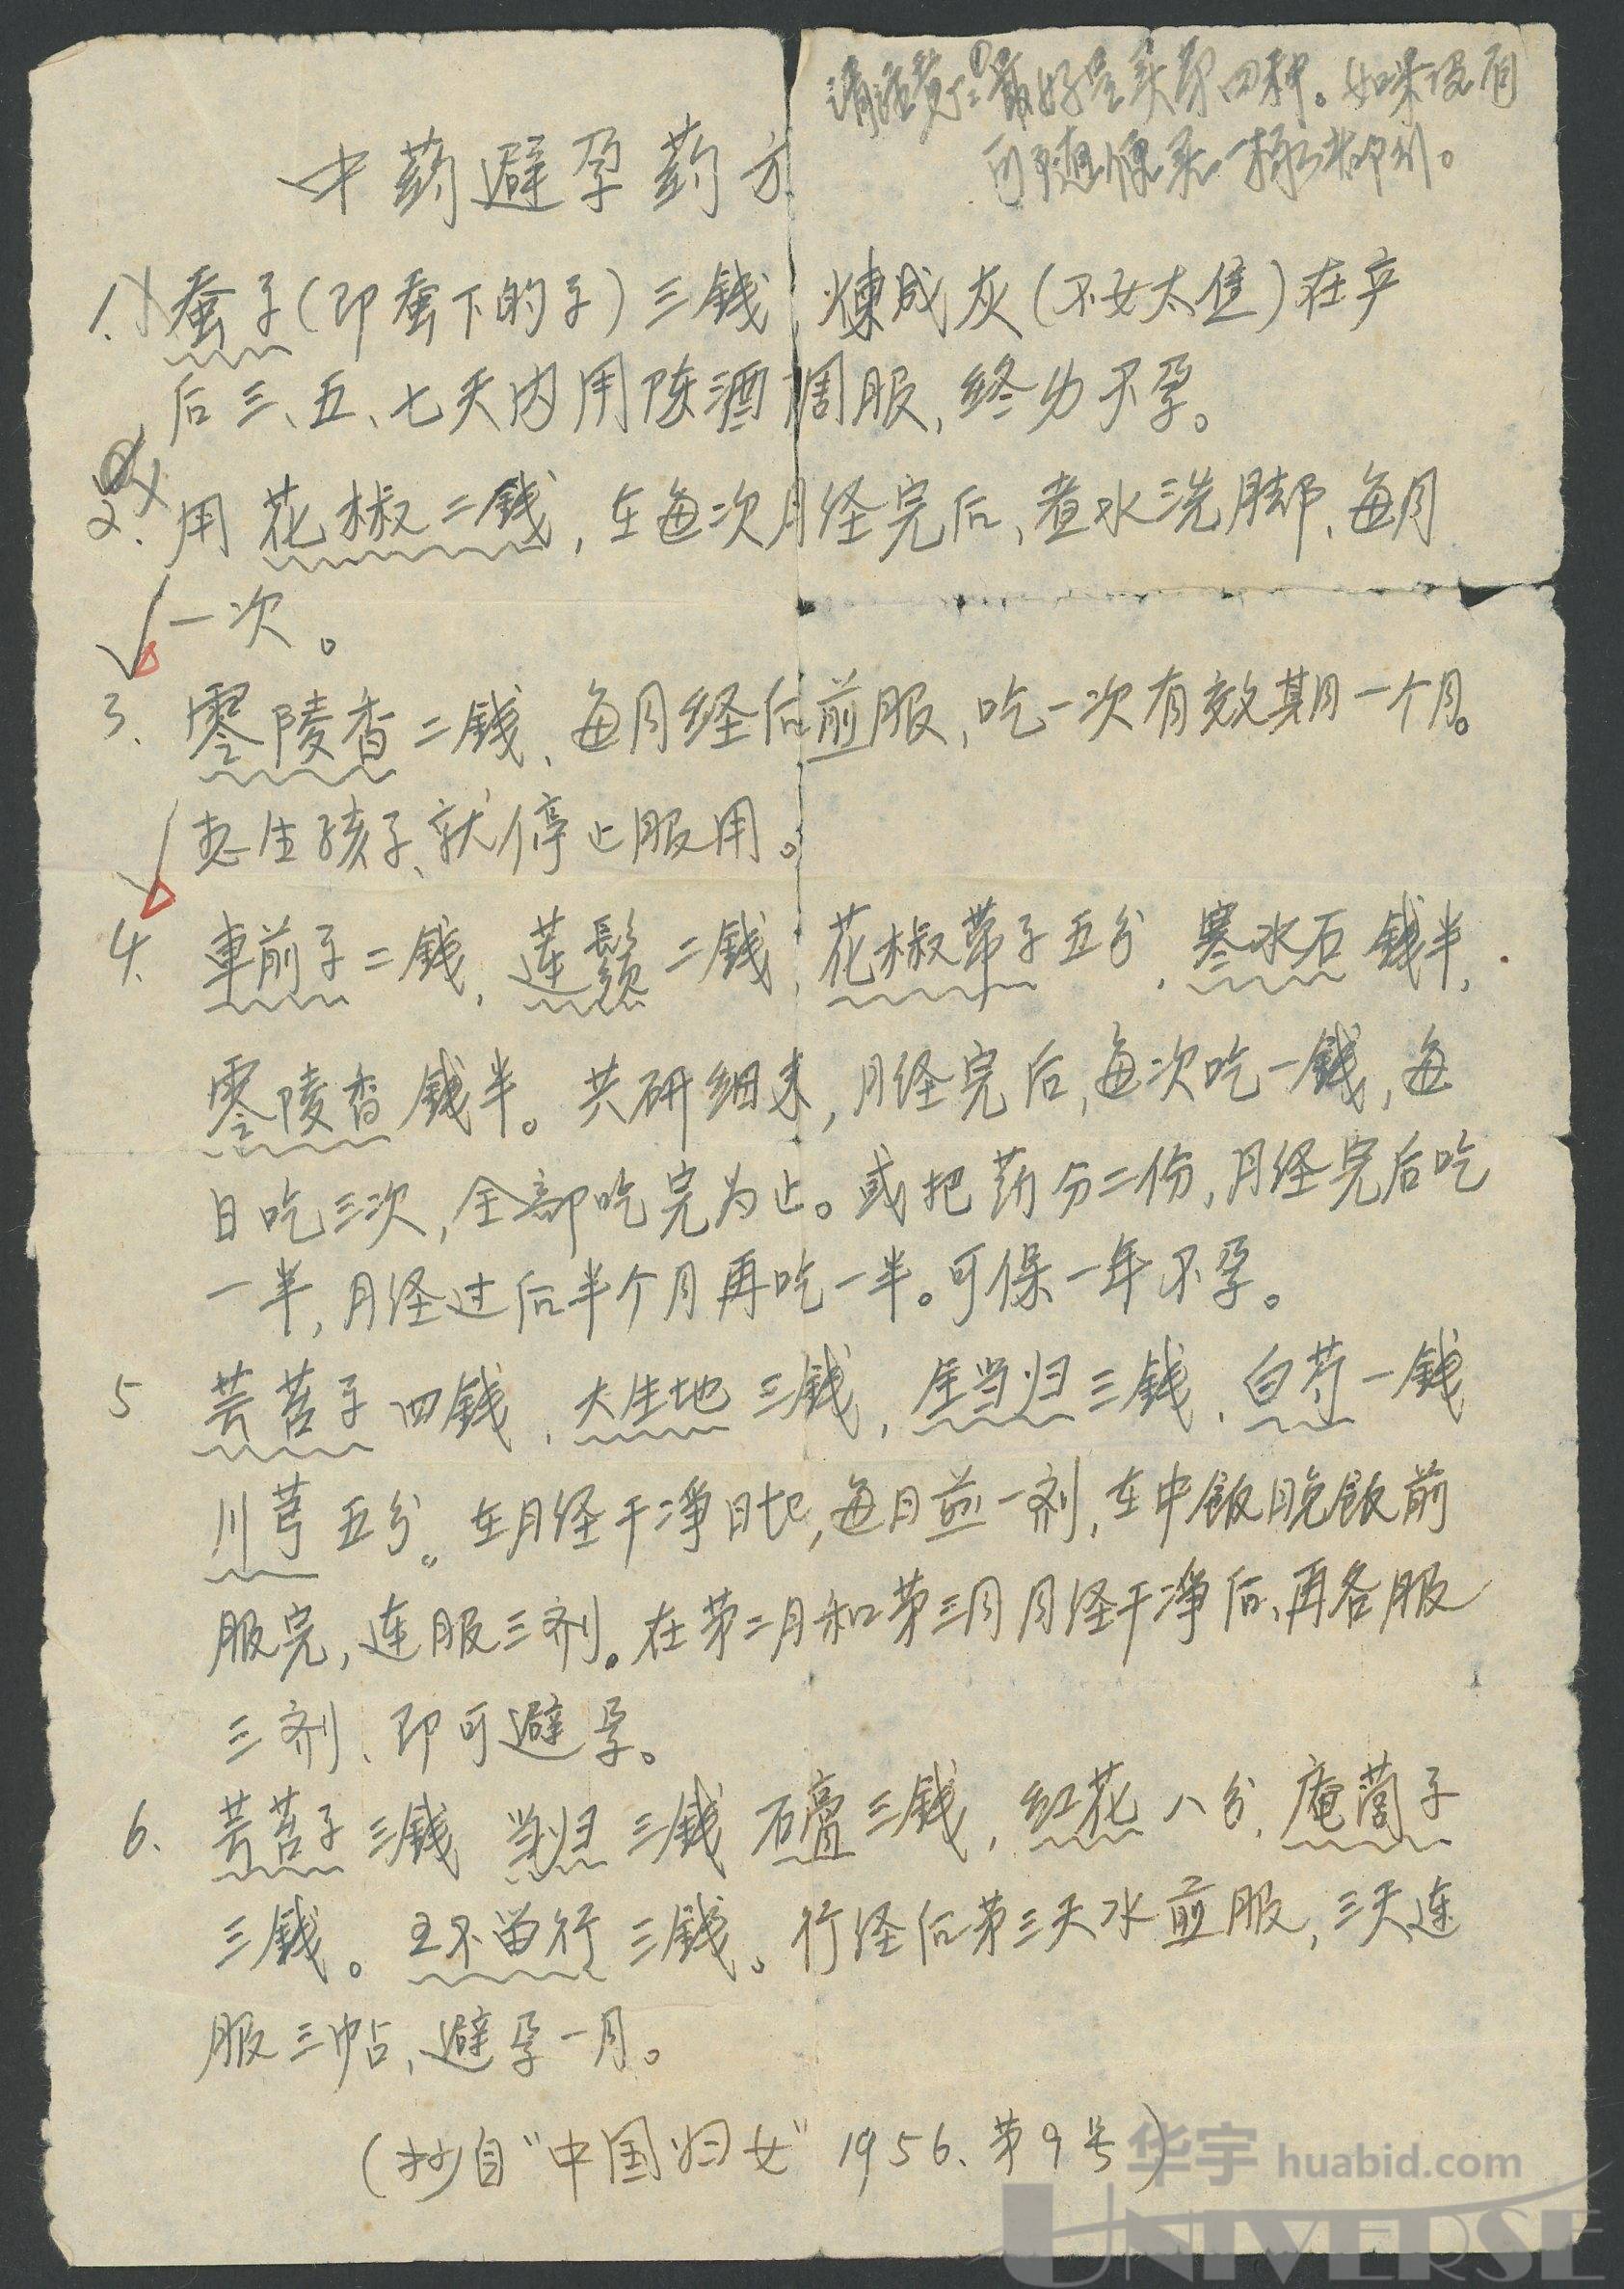 请注意:①最好是买第四种。如果没有
可随便买一种
中药避孕药方
1. 蚕子(即蚕下的子)三錢,煉成灰(不女太焦)在产
后三、五、七天内用陈酒调服,终为不孕。
2. 用花椒二錢,在每次月经完后、煮水洗脚、每月
一次。
3、零陵香二錢、每月经后煎服,吃一次有效期一个月。
想生孩子、就停止服用。
4、車前子二錢,莲鬚二錢,花椒蒂子五分,寒水石錢半,
零陵香錢半。共研细末,月经完后,每次吃一錢,每
日吃三次,全部吃完为止。或把药分二份,月经完后吃
一半,月经过后半个月再吃一半。可保一年不孕。
5 芸苔子四錢,大生地三錢,全当归三錢、白芍一錢
川芎五分。在月经干净日起,每日煎一剂,在中飯晚飯前
服完,连服三剂。在第二月和第三月月经干净后、再各服
三剂、即可避孕。
6、芸苔子三錢 当归三錢 石膏三錢,红花八分,庵䕡子
三錢。王不留行三錢。行经后第三天水煎服,三天连
服三帖、避孕一月。
(抄自"中国妇女"1956、第9号)
华宇 huabid.com
UNIVERSE